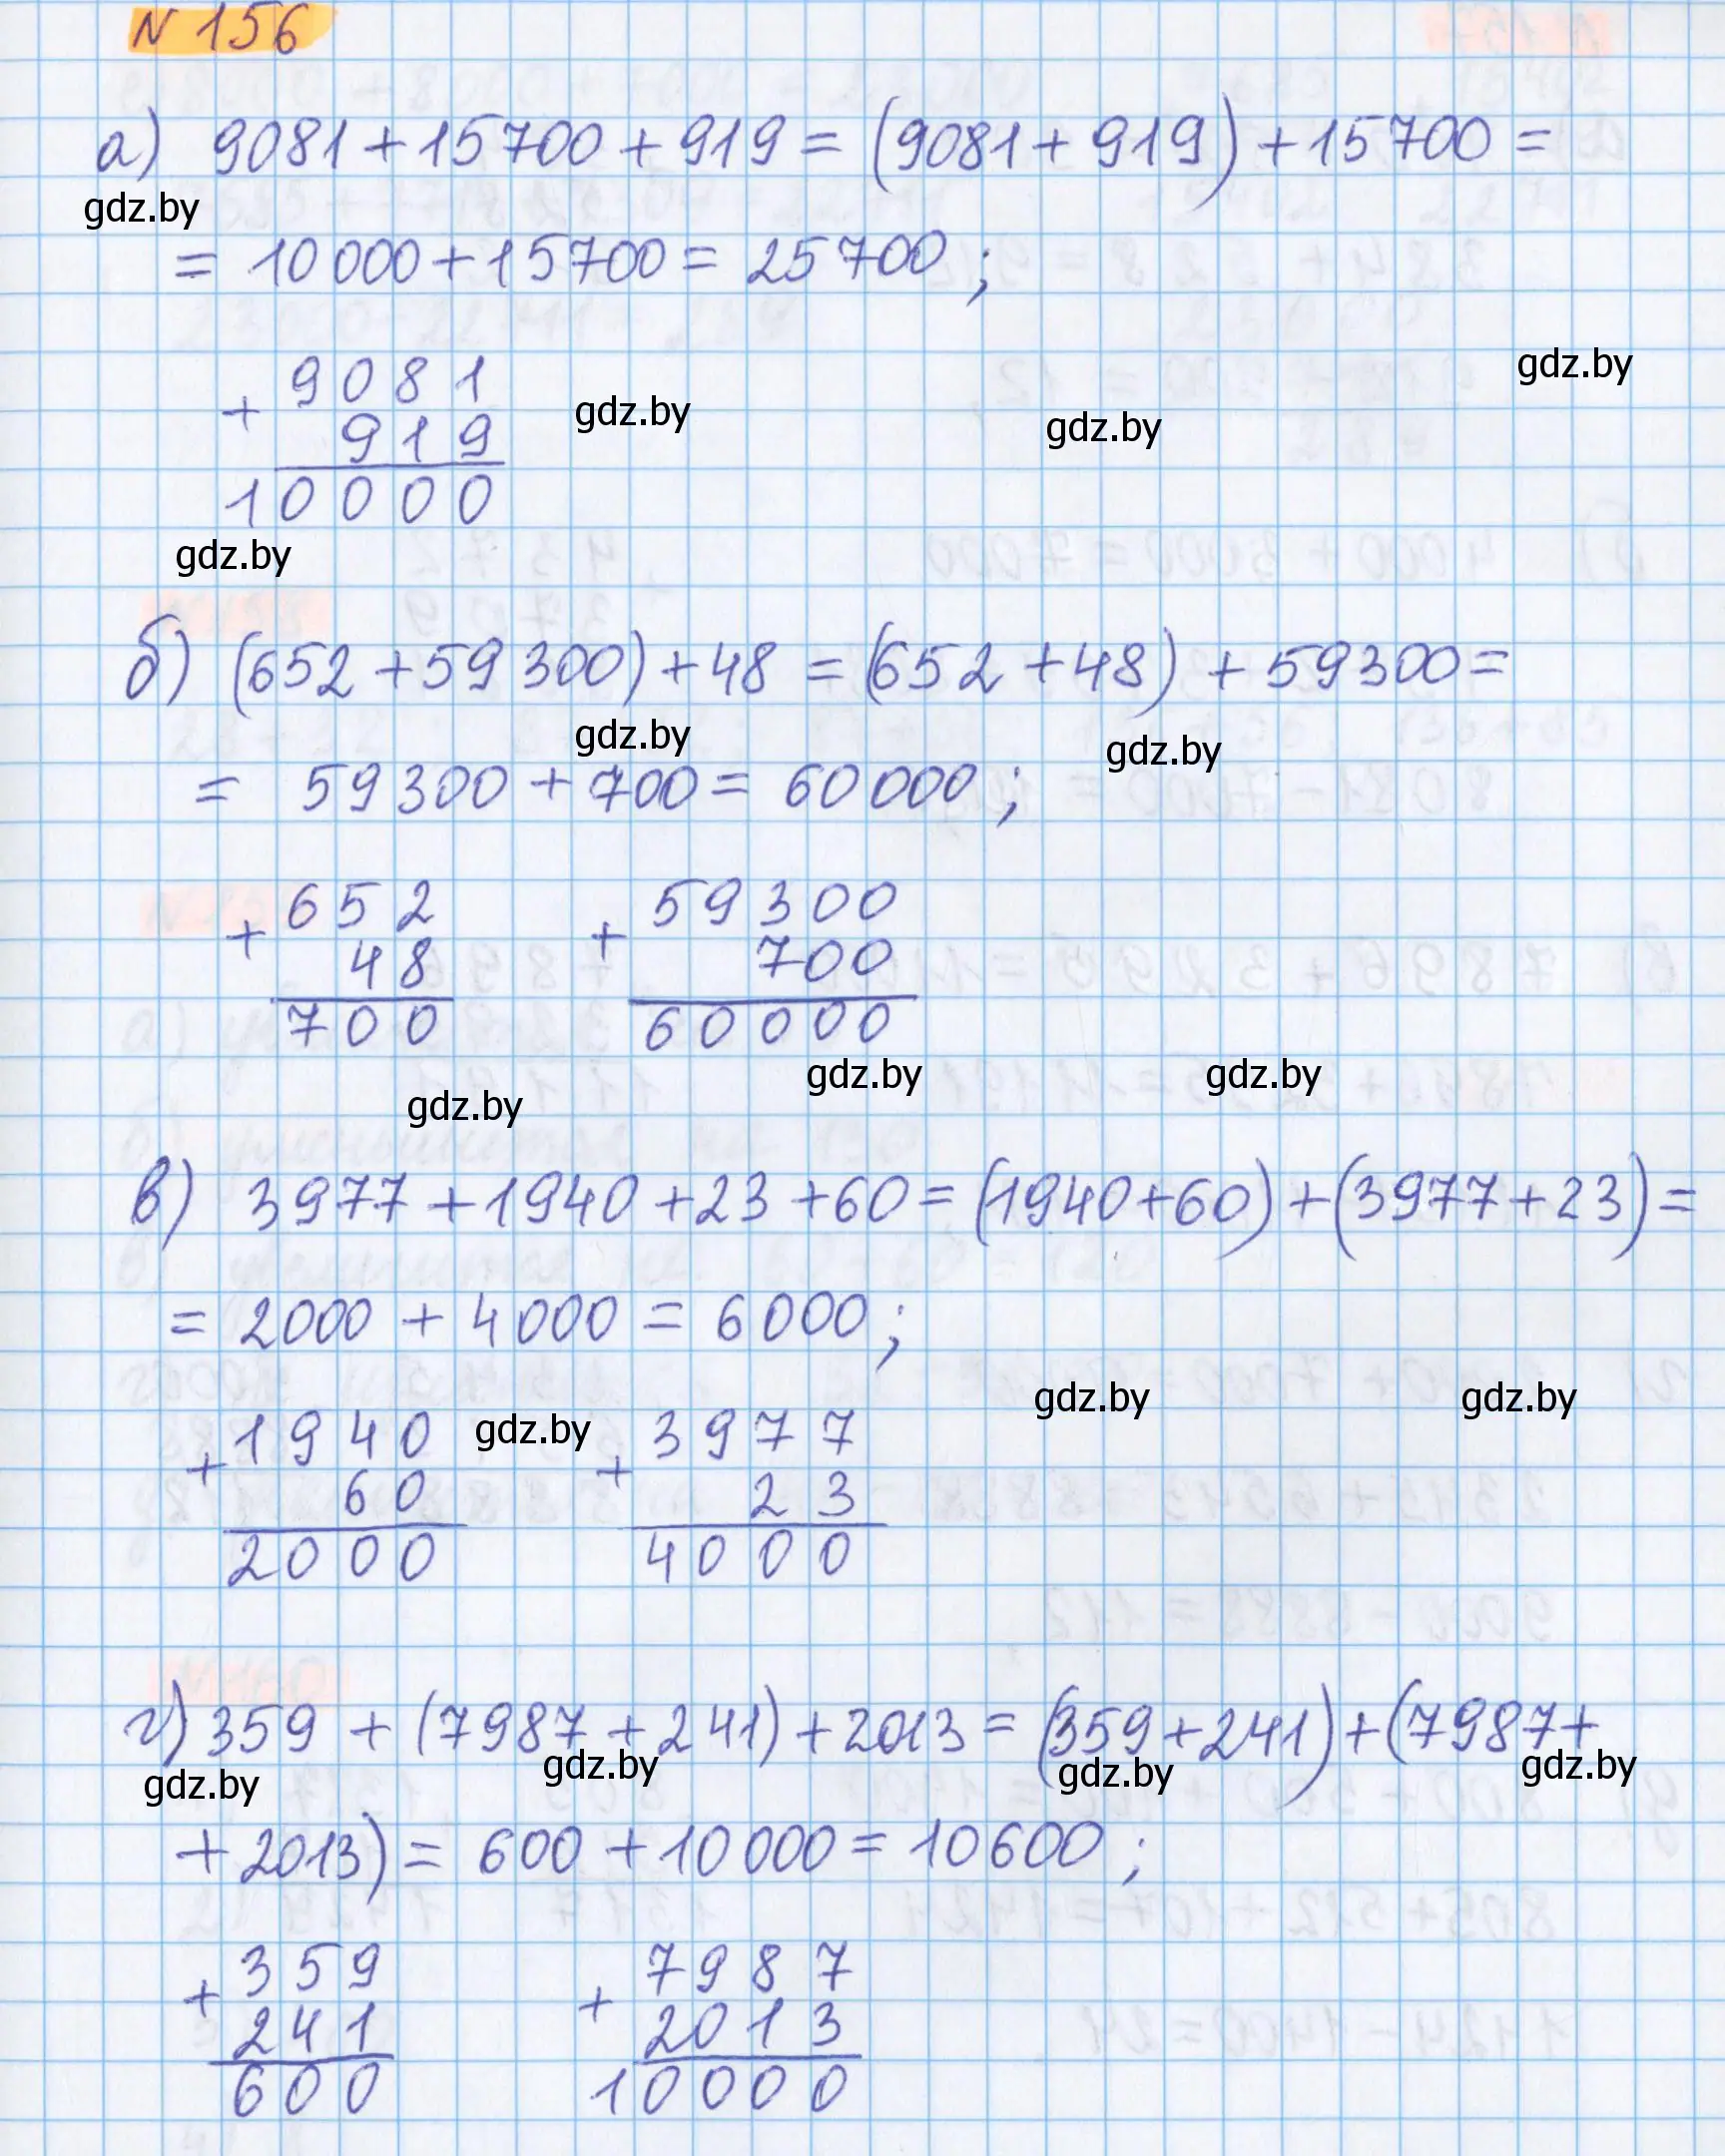 N 156
а) 9081 + 15700 + 919 = (9081 + 919) + 15700 =
gdz.by
= 10 000 + 15700 = 25 700 ;
gdz.by
+ 9081
919
gdz.by
gdz.by
10000
gdz.by
б) (652 + 59 300) + 48 = (652 + 48) + 59300 =
gdz.by
gdz.by
= 59 300 + 700 = 60 000 ;
+ 652 + 59300
48 700
700 60000
gdz.by gdz.by
gdz.by
в) 3977 + 1940 + 23 + 60 = (1940 + 60) + (3977 + 23) =
= 2000 + 4000 = 6000 ;
gdz.by gdz.by
+ 1940 gdz.by + 3977
60 23
2000 4000
г) 359 + (7987 + 241) + 2013 = (359 + 241) + (7987 +
gdz.by gdz.by gdz.by gdz.by
+ 2013) = 600 + 10 000 = 10 600 ;
+ 359 + 7987
241 2013
600 10000